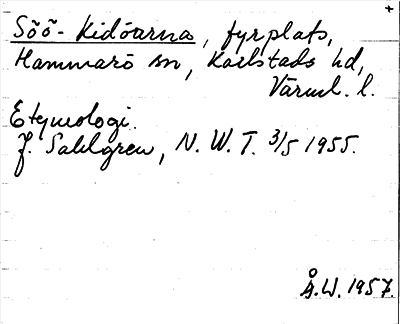 +
Söö-Kidöarna, fyrplats,
Hammarö sn, Karlstads hd,
Värml. l.
Etymologi.
J. Sahlgren, N. W. T. 3/5 1955.
Å.W. 1957.